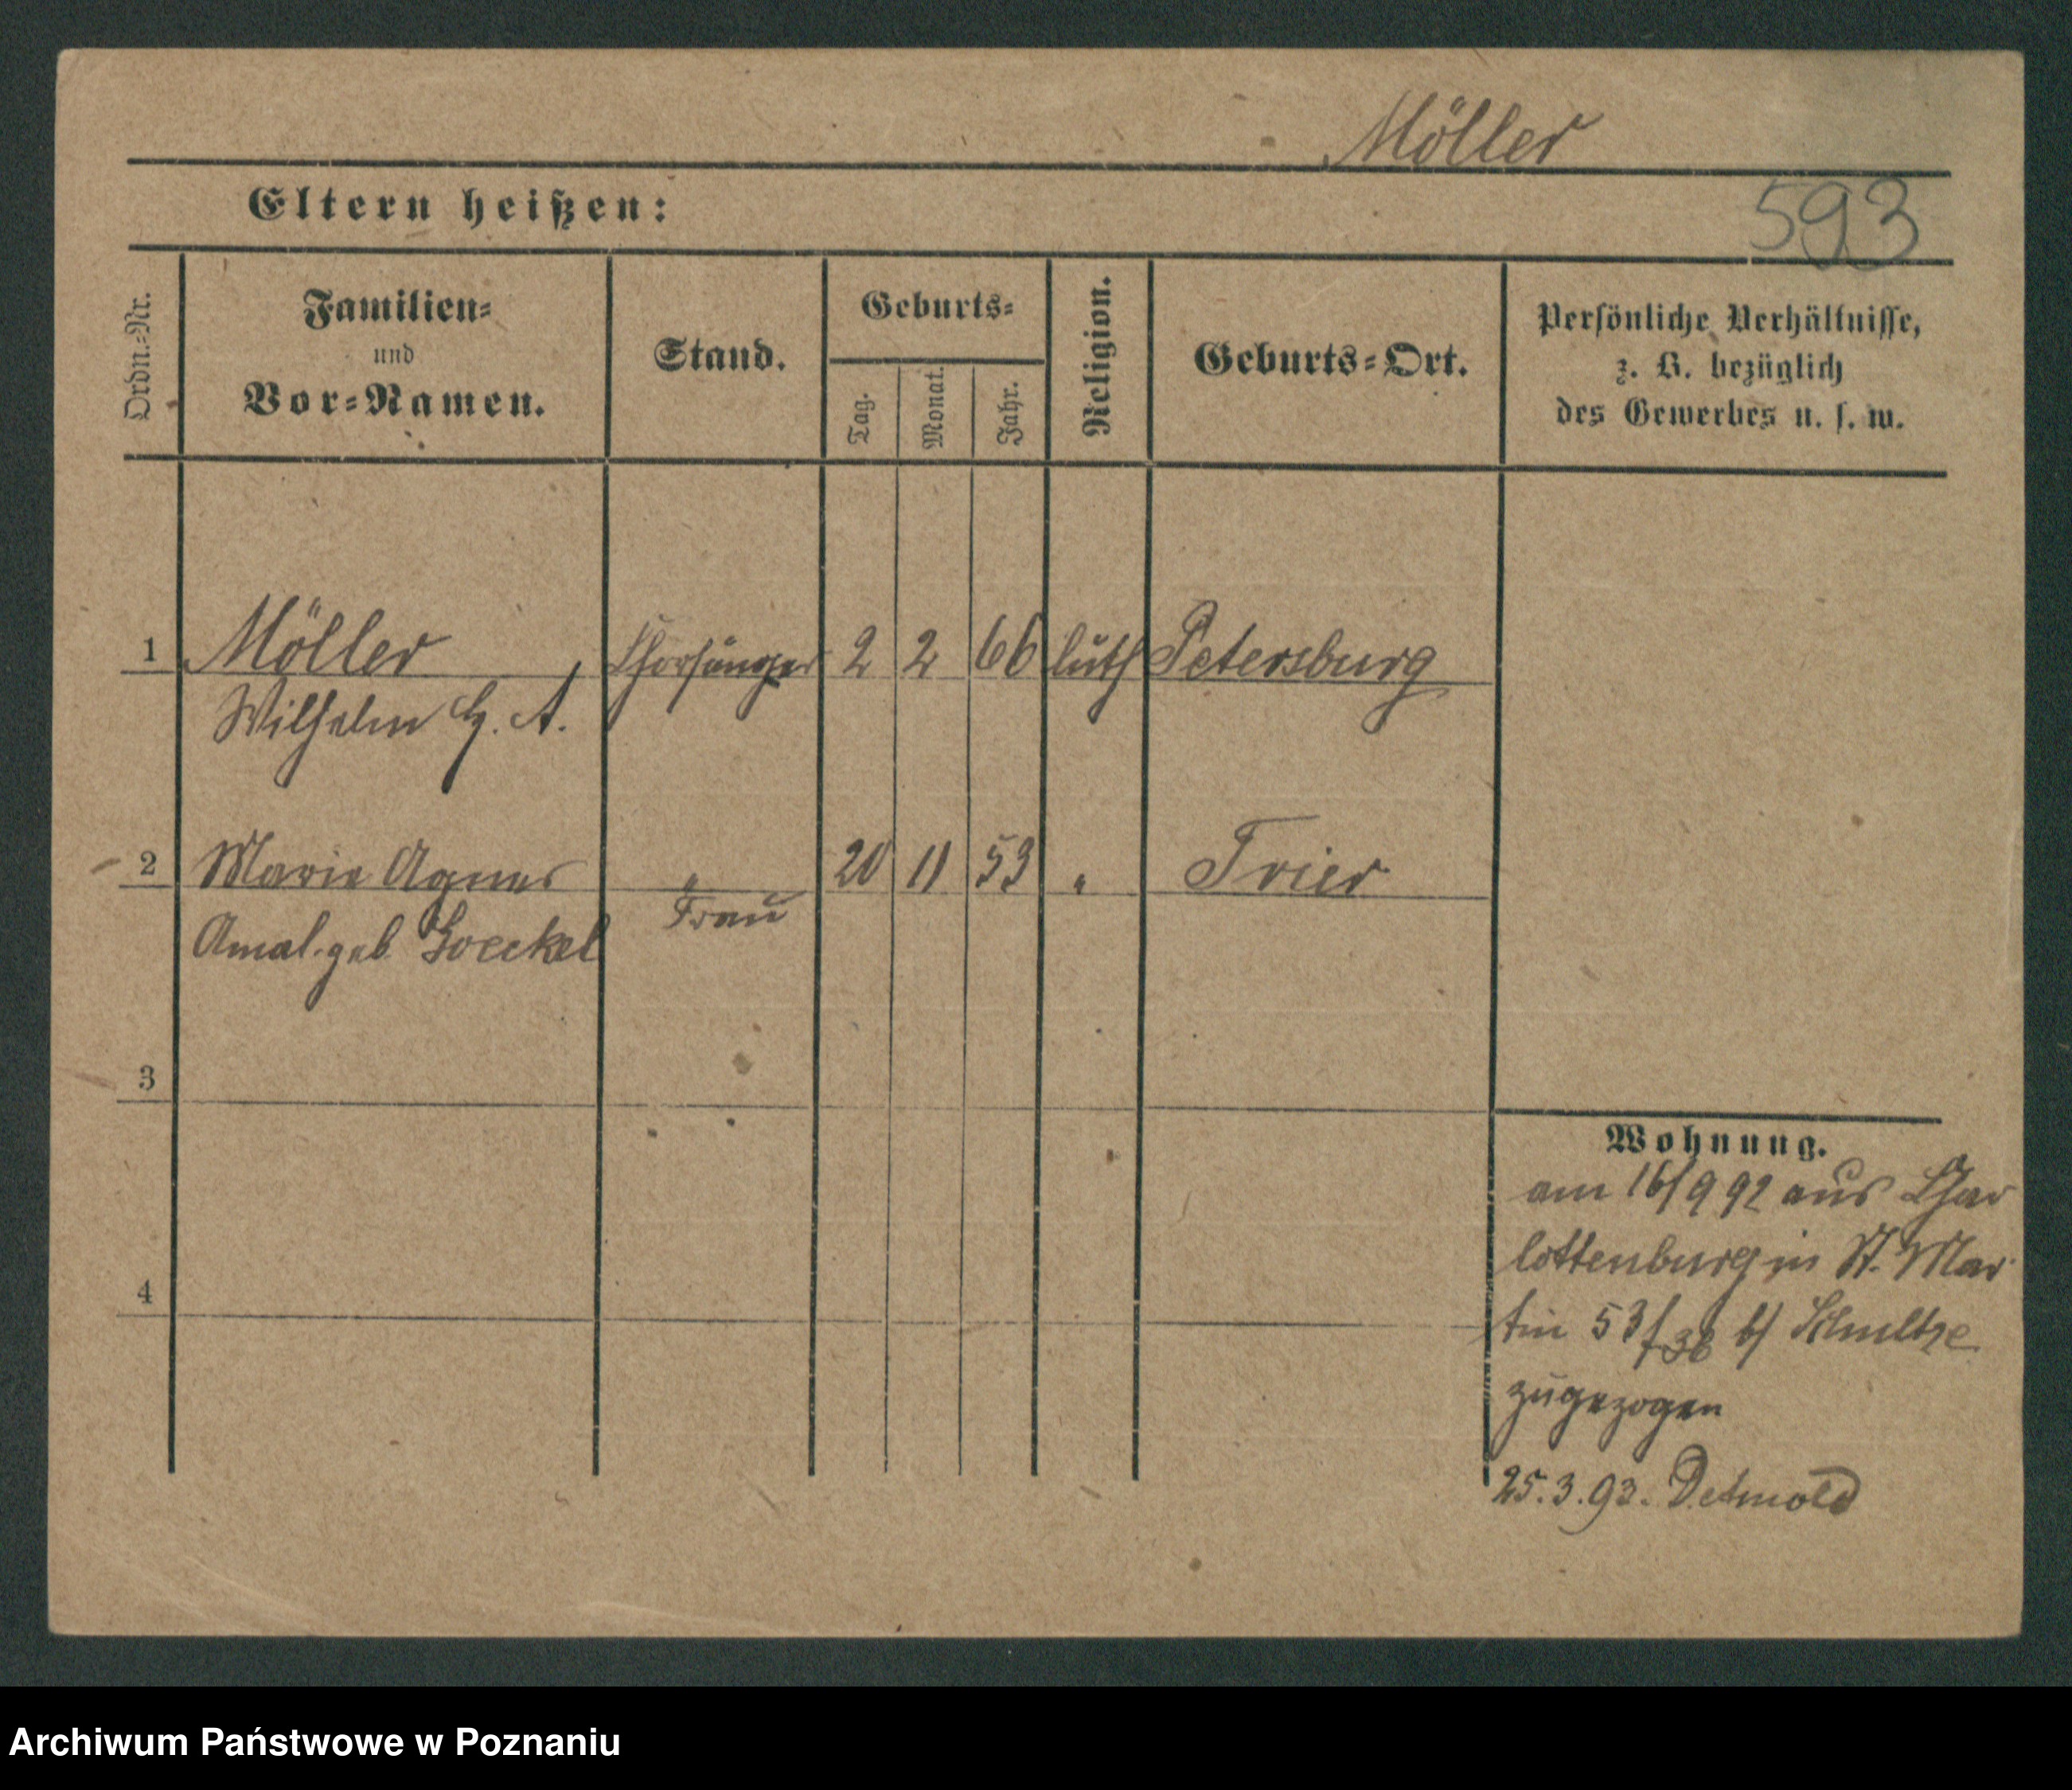 Möller
Eltern heißen:
593
Ordn.-Nr.
Familien-
und
Vor-Namen.
Stand.
Geburts-
Tag.
Monat.
Jahr.
Religion.
Geburts-Ort.
Persönliche Verhältnisse,
z. B. bezüglich
des Gewerbes u. s. w.
1 Möller Chorsänger 2 2 66 luth Petersburg
Wilhelm H. A.
2 Marie Agnes " 20 11 53 " Trier
Frau
Amal. geb Goeckel
3
4
Wohnung.
am 16/9 92 aus Char
lottenburg in St. Mar
tin 53/ b/ Schultze
zugezogen
25.3.93. Detmold
Archiwum Państwowe w Poznaniu